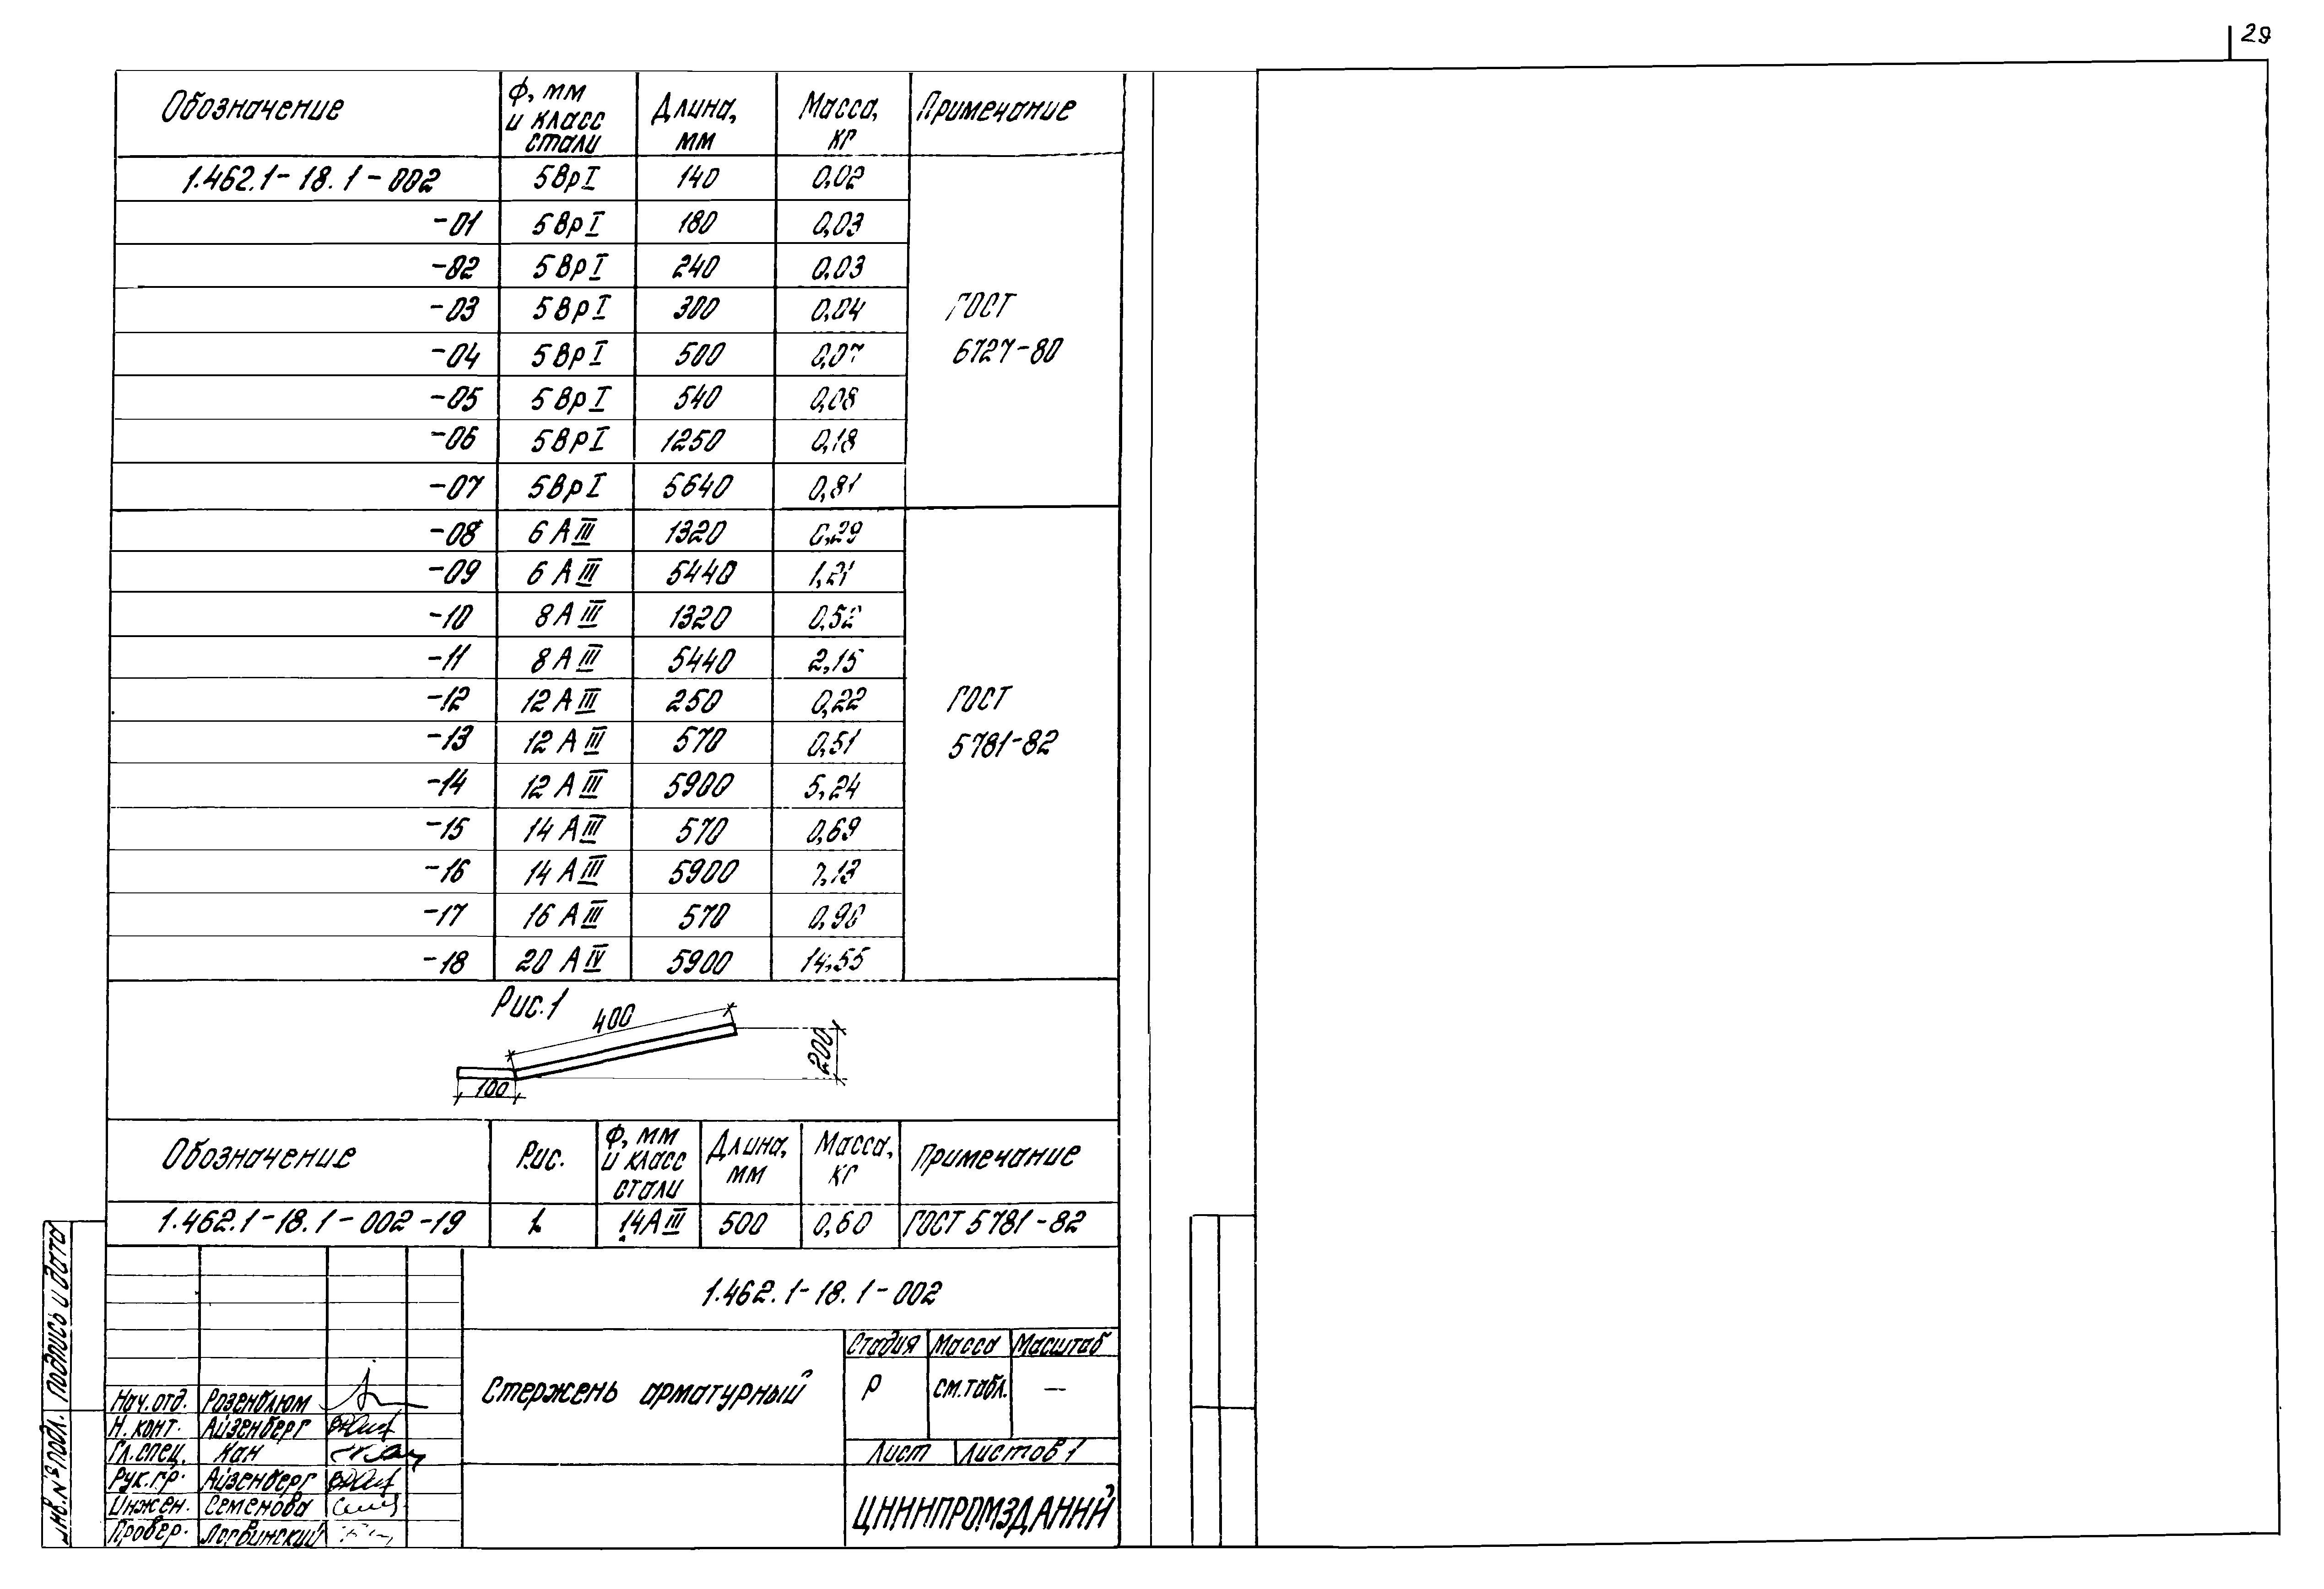 29
Обозначение | Ф, мм и класс стали | Длина, мм | Масса, кг | Примечание
1.462.1-18.1-002 | 5ВрI | 140 | 0,02 | ГОСТ 6727-80
-01 | 5ВрI | 180 | 0,03
-02 | 5ВрI | 240 | 0,03
-03 | 5ВрI | 300 | 0,04
-04 | 5ВрI | 500 | 0,07
-05 | 5ВрI | 540 | 0,08
-06 | 5ВрI | 1250 | 0,18
-07 | 5ВрI | 5640 | 0,81
-08 | 6 АIII | 1320 | 0,29 | ГОСТ 5781-82
-09 | 6 АIII | 5440 | 1,21
-10 | 8 АIII | 1320 | 0,52
-11 | 8 АIII | 5440 | 2,15
-12 | 12 АIII | 250 | 0,22
-13 | 12 АIII | 570 | 0,51
-14 | 12 АIII | 5900 | 5,24
-15 | 14 АIII | 570 | 0,69
-16 | 14 АIII | 5900 | 7,13
-17 | 16 АIII | 570 | 0,90
-18 | 20 АIV | 5900 | 14,55
Рис.1
400
200
100
Обозначение | Рис. | Ф, мм и класс стали | Длина, мм | Масса, кг | Примечание
1.462.1-18.1-002-19 | 1 | 14АIII | 500 | 0,60 | ГОСТ 5781-82
1.462.1-18.1-002
Стержень арматурный
Стадия | Масса | Масштаб
Р | см.табл. | —
Лист | Листов 1
ЦНИИПРОМЗДАНИЙ
Нач.отд. Розенблюм
Н.конт. Айзенберг
Гл.спец. Кан
Рук.гр. Айзенберг
Инжен. Семенова
Провер. Логвинский
Подпись и дата
Инв.№подл.